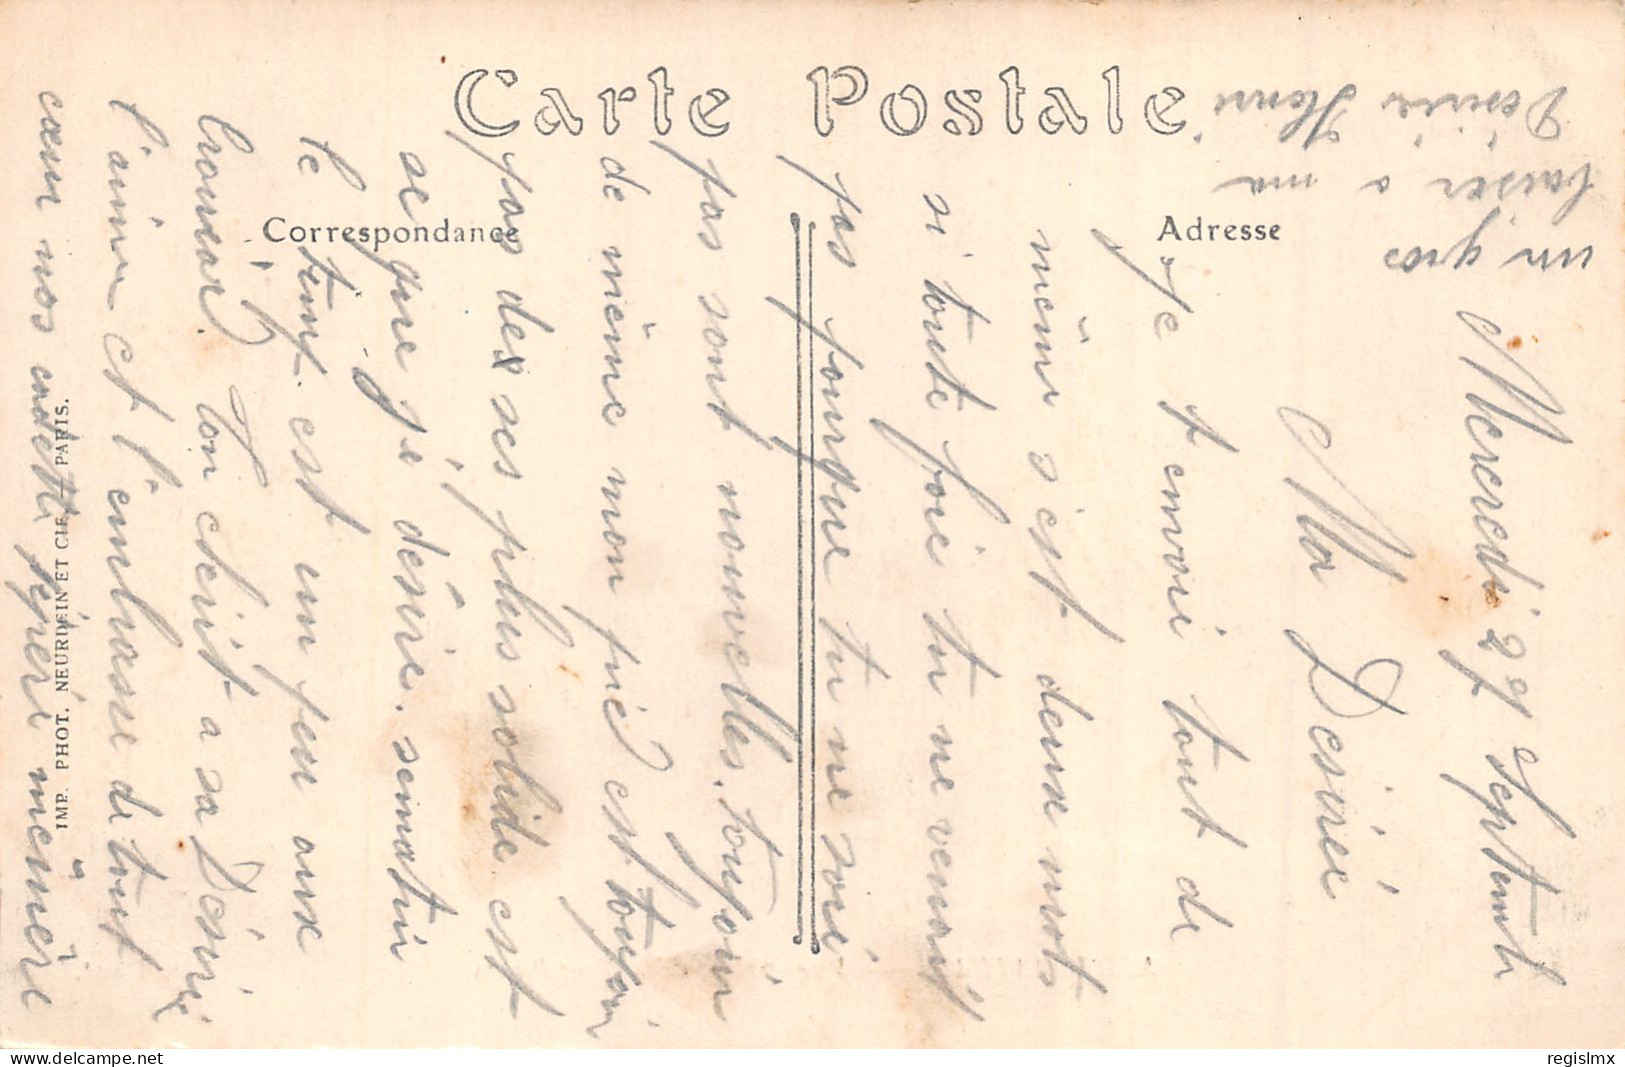 Carte Postale
Correspondance
Adresse
IMP. PHOT. NEURDEIN ET CIE. PARIS.
Mercredi 29 Septemb
Ma Desirée
Je t envoi tout de
même s'est deux mots
si toute fois tu ne venait
pas pourque tu ne soié
pas sont nouvelles. toujoir
de même mon pié est toujoir
pas des ses plus solide est
se que je désire. sematin
le temp est un peu
Ton cherit a sa Désirée
t'aime et t'embrasse de tout
cœur nos
un gros
baiser a ma
Desirée Henri
delcampe.net
regislmx